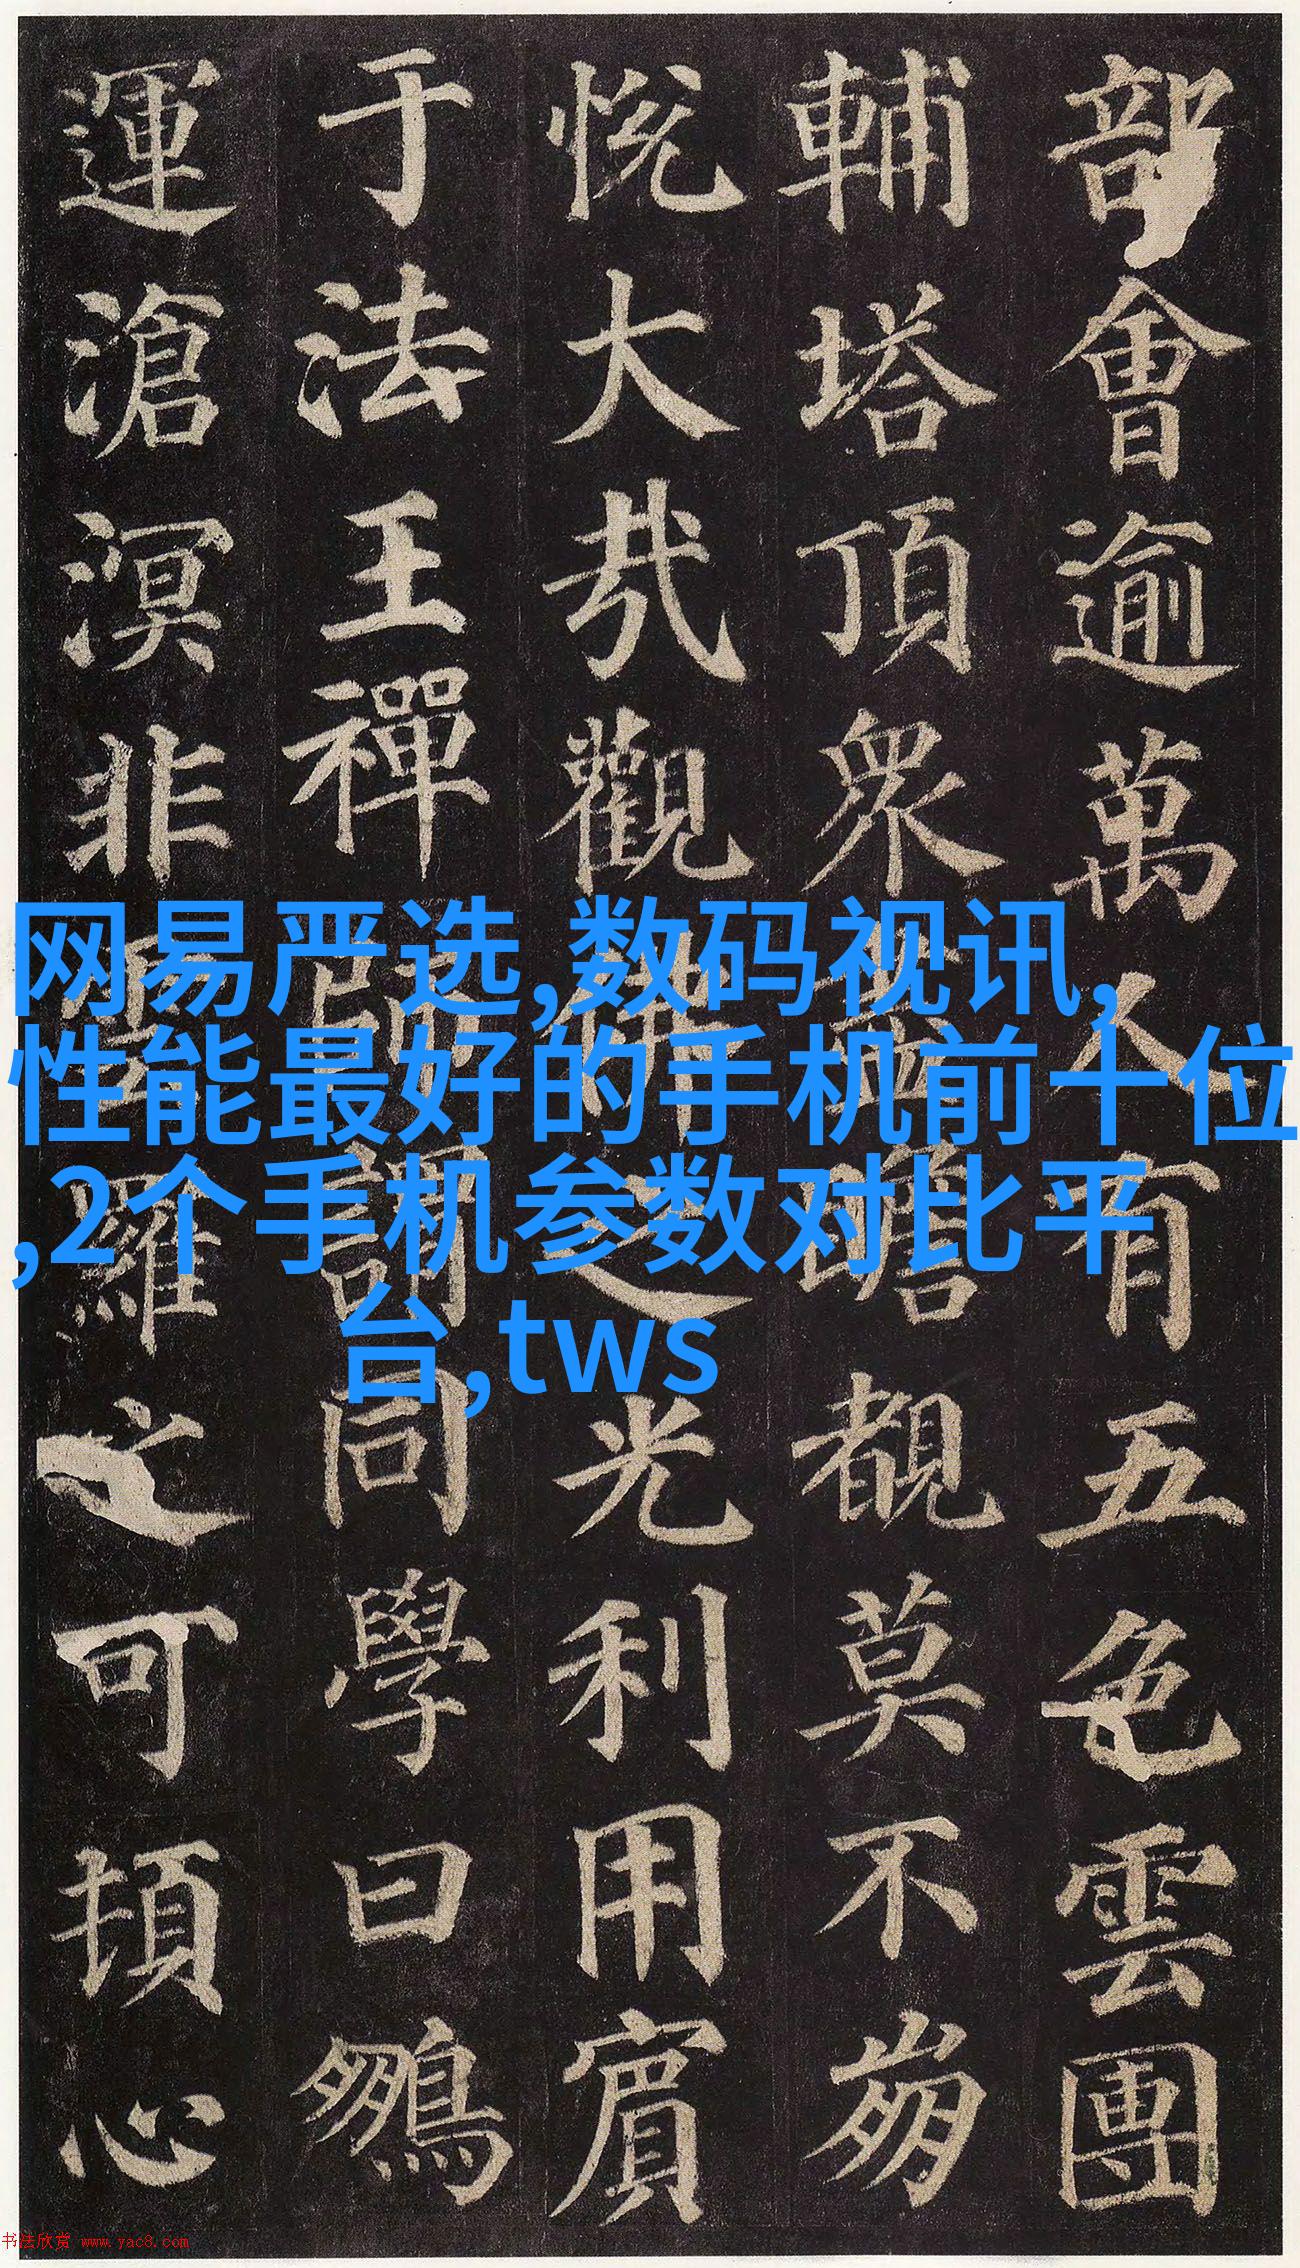 部會逾萬人有五色雲團
輔塔頂眾盡瞻覩莫不崩
悅大哉觀佛之光利用賓
于法王禪師謂同學曰鵬
運滄溟非雲羅之可頓心
网易严选,数码视讯,
性能最好的手机前十位
,2个手机参数对比平
台,tws
书法欣赏 www.yac8.com